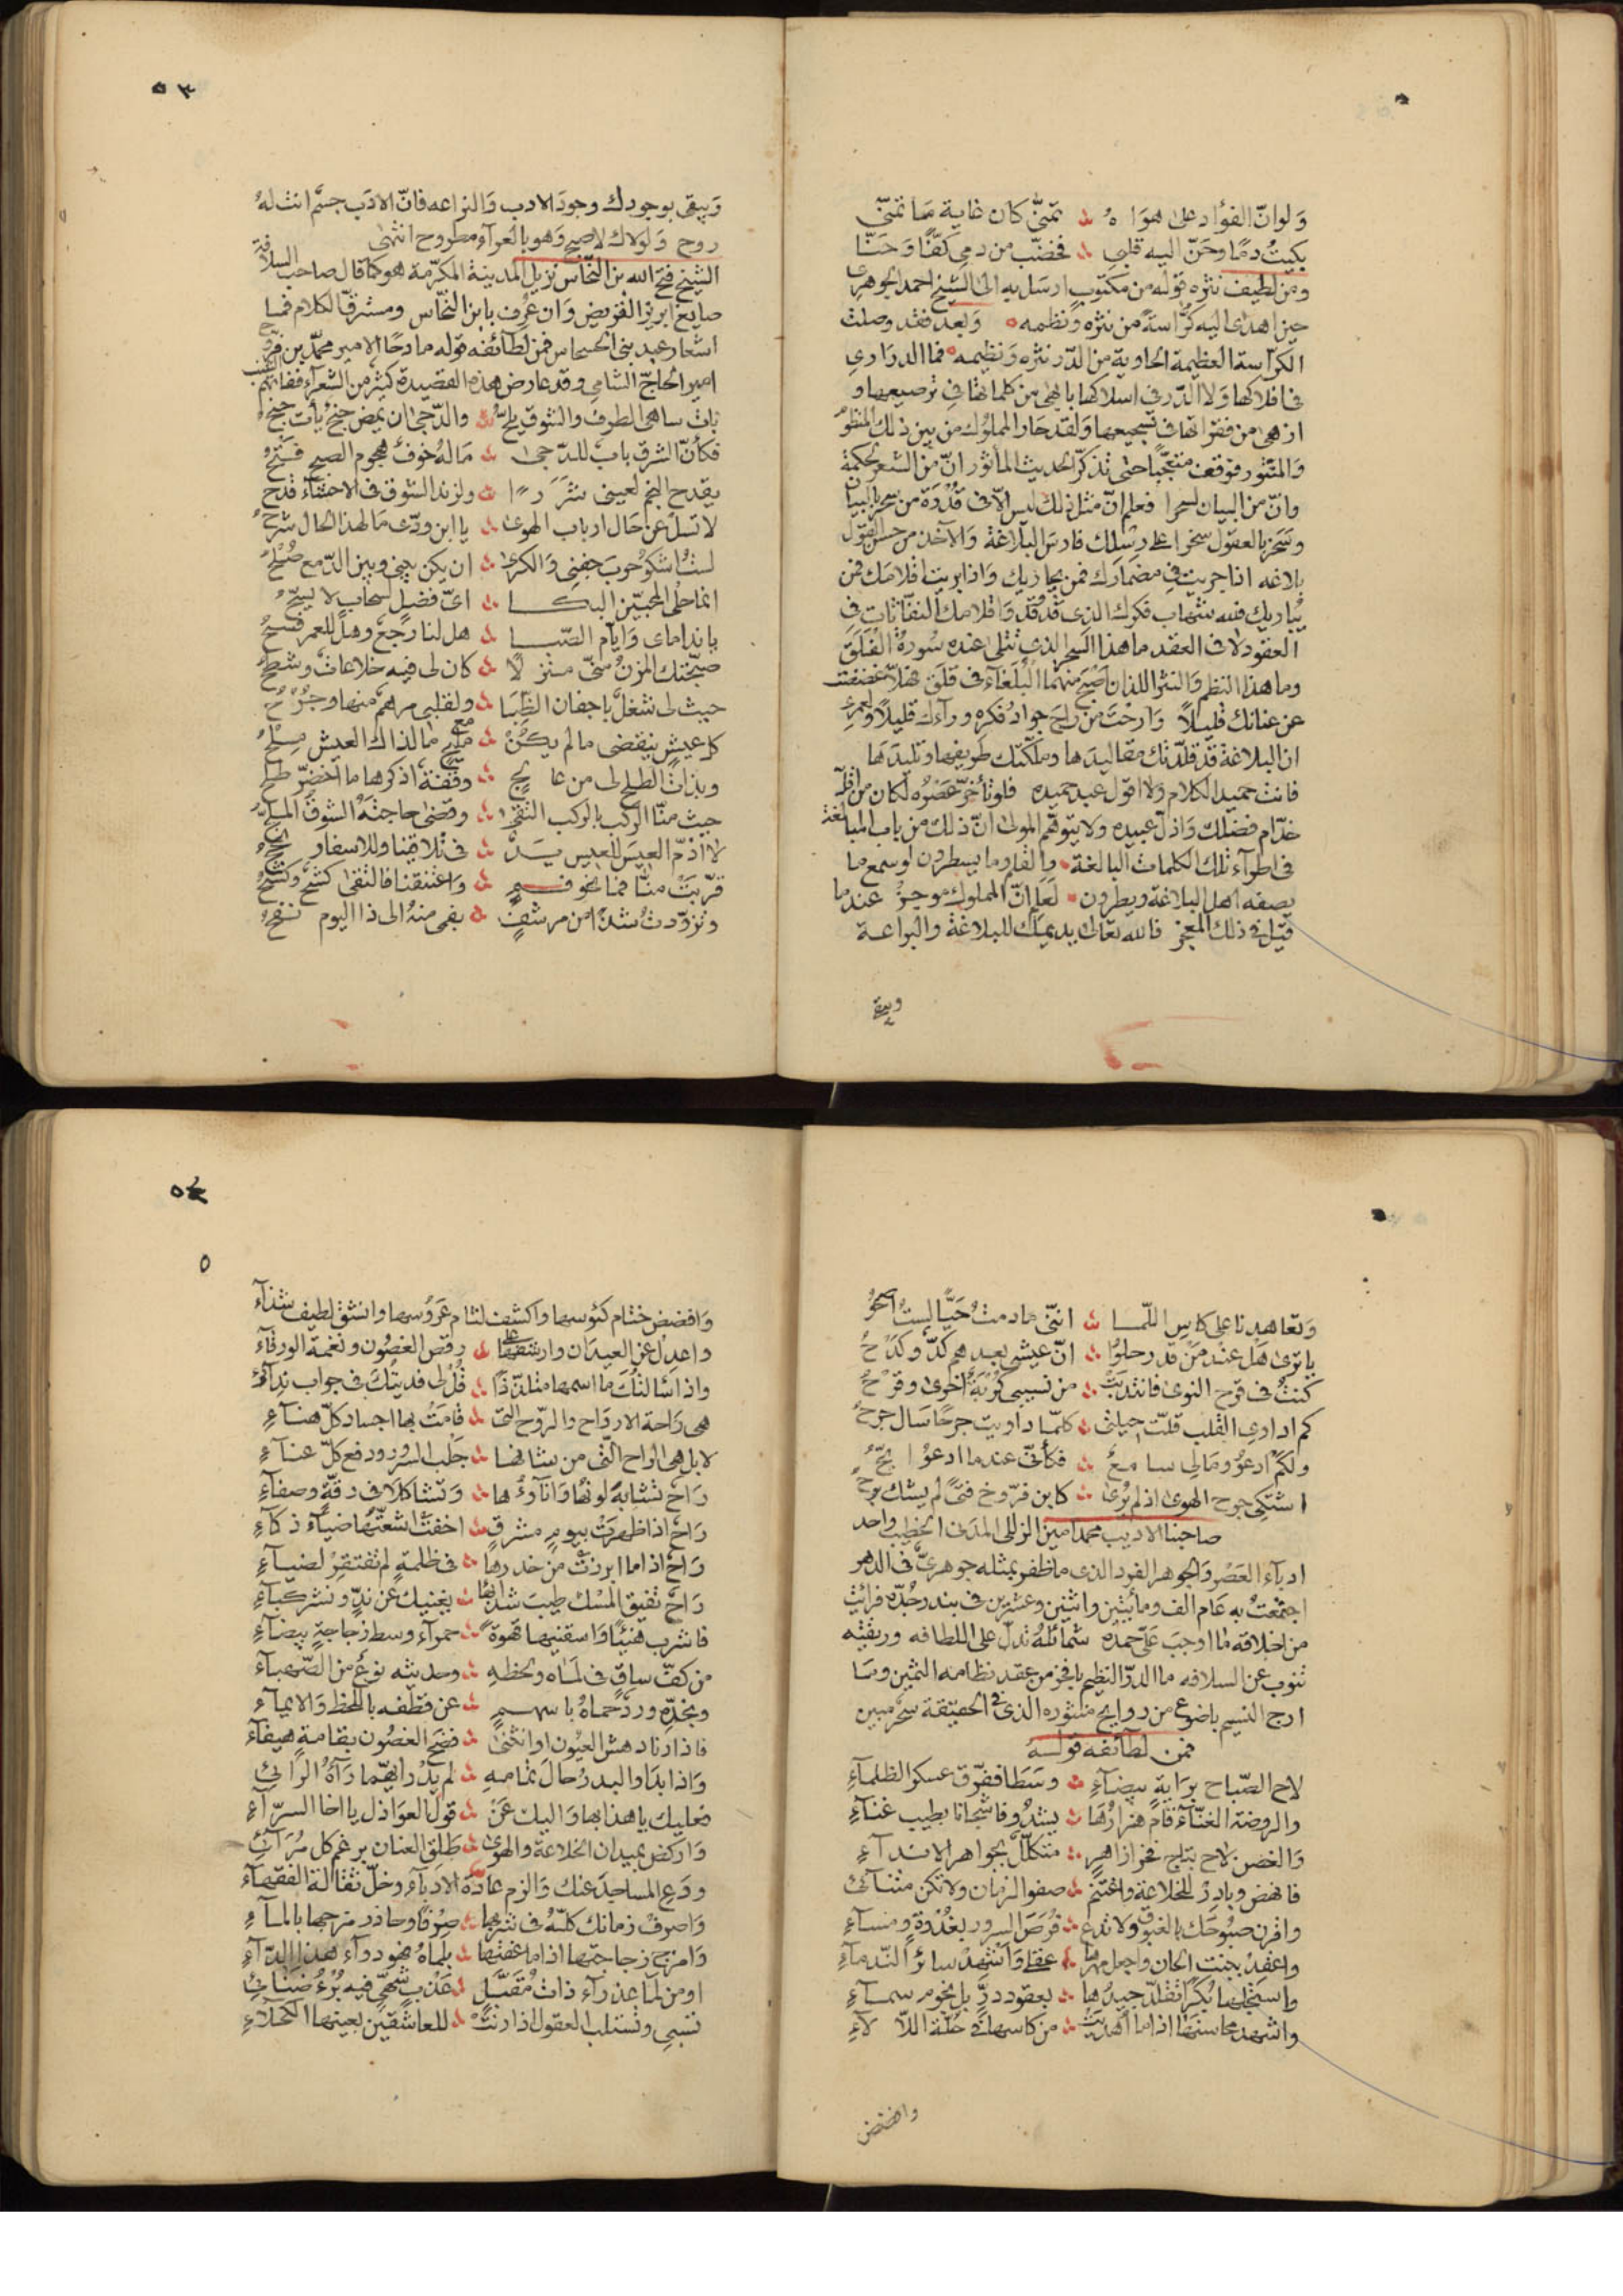 ولو انّ الفؤاد على هواه ؞ تمنّى كان غاية ما تمنّى
بكيت دمًا وحنّ اليه قلبي ؞ فخضّب من دمي كفّا وحنّا
ومن لطيف نثره قوله من مكتوب ارسل به الى الشيخ احمد الجوهري
حين اهدى اليه كرّاسة من نثره ونظمه وبعد فقد وصلت
الكرّاسة العظيمة الحاوية من الدّر نثره ونظيمه فما الدراري
في افلاكها ولا الدّر في اسلاكها بابهى من كلماتها في ترصيعها و
ازهى من فقراتها في تسجيعها ولقد حار المملوك من بين ذلك المنظوم
والمنثور فوقف متعجّبا حتى تذكّر الحديث المأثور انّ من الشعر لحكمة
وانّ من البيان لسحرا فعلم انّ مثل ذلك ليس الّا في قدرة من سحر بالبيان
وسخر بالعقول سخرا على رسلك فارس البلاغة والآخذ من حسن القول
بلاغه اذا جريت في مضمارك فمن يجاريك واذا بريت اقلامك فمن
يباريك فلله شهاب فكرك الذي قد وقد واقلامك النفّاثات في
العقود لا في العقد ما هذا السحر الذي تتلى عنده سورة الفلق
وما هذا النظم والنثر اللذان اصبح منهما البلغاء في قلق هلّا غضضت
عن عنانك قليلًا وارحت من راح جواد فكره وراءك قليلًا ولعمري
ان البلاغة قد قلّدتك مقاليدها وملّكتك طريفها وتليدها
فانت حميد الكلام ولا اقول عبد حميده فلو تأخّر عصره لكان من اقلّ
خدّام فضلك واذلّ عبيده ولا يتوهّم المولى انّ ذلك من باب المبالغة
في اطراء تلك الكلمات البالغة والقلم وما يسطرون لو سمع ما
يصفه اهل البلاغة ويطرون لعلم انّ المملوك موجز عند ما
قيل في ذلك المعجز فالله تعالى يديمك للبلاغة والبراعة
ويبقى
٥٣
ويبقى بوجودك وجود الادب والبراعه فانّ الادب جسم انت له
روح ولولاك لاصبح وهو بالعراء مطروح انتهى
الشيخ فتح الله بن النحّاس نزيل المدينة المكرّمة هو كما قال صاحب السلافة
صايغ ابريز القريض وان عرف بابن النحّاس ومشرّق الكلام فما
اشعار عبد بني الحسحاس فمن لطائفه قوله مادحًا الامير محمّد بن فرّوخ
امير الحاجّ الشامي وقد عارض هذه القصيدة كثير من الشعراء ففاتهم
بات ساهي الطرف والشوق يلحّ ؞ والدّجى ان يمض جنح يأت جنح
فكأنّ الشرق باب للدّجى ؞ ماله خوف هجوم الصبح فتح
يقدح النجم لعيني شررًا ؞ ولزند الشوق في الاحشاء قدح
لا تسل عن حال ارباب الهوى ؞ يا ابن ودّي ما لهذا الحال شرح
لست اشكو حرب جفني والكرى ؞ ان يكن بيني وبين الدّمع صلح
انما حلى المحبّين البكا ؞ ايّ فضل لسحاب لا يسحّ
يا نداماي وايّام الصّبا ؞ هل لنا رجع وهل للعمر فسح
صبّحتك المزن سحّي منزلا ؞ كان لي فيه خلاعات وشطح
حيث لي شغل باجفان الظبا ؞ ولقلبي مرهم منها وجرح
كل عيش ينقضي ما لم يكن ؞ مع مليح ما لذاك العيش ملح
وبذات الطلح لي من عالج ؞ وقفة اذكرها ما اخضرّ طلح
حيث منّا الركب بالركب التقى ؞ وقضى حاجته الشوق الملحّ
لا اذمّ العيس للعيس يد ؞ في تلاقينا وللاسفار نجح
قرّبت منّا فما نحو فم ؞ واعتنقنا فالتقى كشح وكشح
وتزوّدت شذًا من مرشف ؞ بفمي منه الى ذا اليوم نفح
وتعاهدنا على كاس اللّما ؞ انني ما دمت حيًّا لست اصحو
يا ترى هل عند من قد رحلوا ؞ انّ عيشي بعدهم كدّ وكدح
كنت في قرح النوى فانتدبت ؞ من نسيبي كربة اخرى وقرح
كم اداوي القلب قلّت حيلتي ؞ كلّما داويت جرحًا سال جرح
ولكم ادعو وما لي سامع ؞ فكأنّي عندما ادعو ابحّ
اشتكي جرح الهوى اذ لم يُرى ؞ كابن فرّوخ فتًى لم يشك برح
صاحبنا الاديب محمد امين الزللي المدني الخطيب واحد
ادباء العصر والجوهر الفرد الذي ما ظفر بمثله جوهريّ في الدهر
اجتمعت به عام الف ومأتين واثنين وعشرين في بندر جدّه فرأيت
من اخلاقه ما اوجب عليّ حمده شمائله تدلّ على اللطافه وريقته
تنوب عن السلافه ما الدرّ النظيم بافخر من عقد نظامه الثمين وما
ارج النسيم باضوع من روايح منثوره الذي في الحقيقة سحر مبين
فمن لطائفه قوله
لاح الصّباح براية بيضاء ؞ وسطا ففرّق عسكر الظلماء
والروضة الغنّاء قام هزارها ؞ يشدو فاشجانا بطيب غناء
والغصن لاح بتاج فخر زاهر ؞ متكلّل بجواهر الانداء
فانهض وبادر للخلاعة واغتنم ؞ صفو الزمان ولا تكن متنائي
واقرن صبوحك بالغبوق ولا تدع ؞ فرص السرور بغدوة ومساء
واعقد ببنت الحان واجعل مهرها ؞ عقلي واشهد سائر الندماء
واستجلها بكرًا تقلّد جيدها ؞ بعقود درّ بل نجوم سماء
واشهد محاسنها اذا ما اهديت ؞ من كاسها في حلّة اللألاء
وافضض
٥٤
٥
وافضض ختام كئوسها واكشف لثام عروسها وانشق لطيف شذاء
واعدل عن العيدان وارشفها على ؞ رقص الغصون ونغمة الورقاء
واذا سالتك ما اسمها متلذّذًا ؞ قل لي فديتك في جواب ندائي
هي راحة الارواح والرّوح التي ؞ قامت بها اجساد كلّ هناء
لا بل هي الراح التي من شانها ؞ جلب السرور ودفع كلّ عناء
راح تشابه لونها واناؤها ؞ وتشاكلا في رقّة وصفاء
راح اذا ظهرت بيوم مشرق ؞ اخفت اشعّتها ضياء ذكاء
راح اذا ما ابرزت من خدرها ؞ في ظلمة لم تفتقر لضياء
راح تفيق المسك طيب شذائها ؞ يغنيك عن ندّ ونشر كباء
فاشرب هنيئًا واسقنيها قهوة ؞ حمراء وسط زجاجة بيضاء
من كفّ ساق في لماه ولحظه ؞ وحديثه نوع من الصّهباء
وبخدّه ورد حماه باسهم ؞ عن قطفه باللحظ والايماء
فاذا رنا دهش العيون او انثنى ؞ فضح الغصون بقامة هيفاء
واذا بدا والبدر حال تمامه ؞ لم يدر ايهما رآه الرائي
فعليك يا هذا بها واليك عن ؞ قول العواذل يا اخا السرّاء
واركض بميدان الخلاعة والهوى ؞ طلق العنان برغم كل مرائي
ودع المساجد عنك والزم عادة الادباء وخلّ ثقالة الفقهاء
واصرف زمانك كلّه في شربها ؞ صرفًا وحاذر مزجها بالماء
وامزج زجاجتها اذا ما عفتها ؞ بلماه فهو دواء هذا الداء
او من لما عذراء ذات مقبّل ؞ عذب شهيّ فيه برء ضنائي
تسبي وتستلب العقول اذا رنت ؞ للعاشقين بعينها الكحلاء